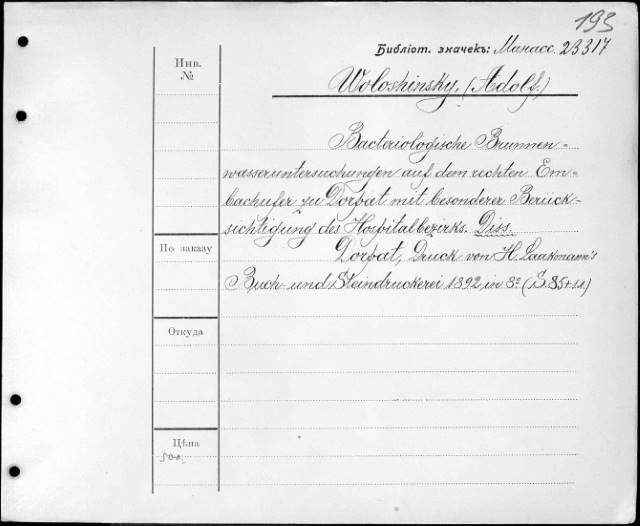 193
Библіот. значекъ: Манасс. 23317
Инв.
№
Woloshinsky, (Adolf.)
Bacteriologische Brunnen-
wasseruntersuchungen auf dem rechten Em-
bachufer zu Dorpat mit besonderer Berück-
sichtigung des Hospitalbezirks. Diss.
По заказу
Dorpat, Druck von H. Laakmann's
Buch- und Steindruckerei 1892, in 8º (S. 85+
Откуда
Цѣна